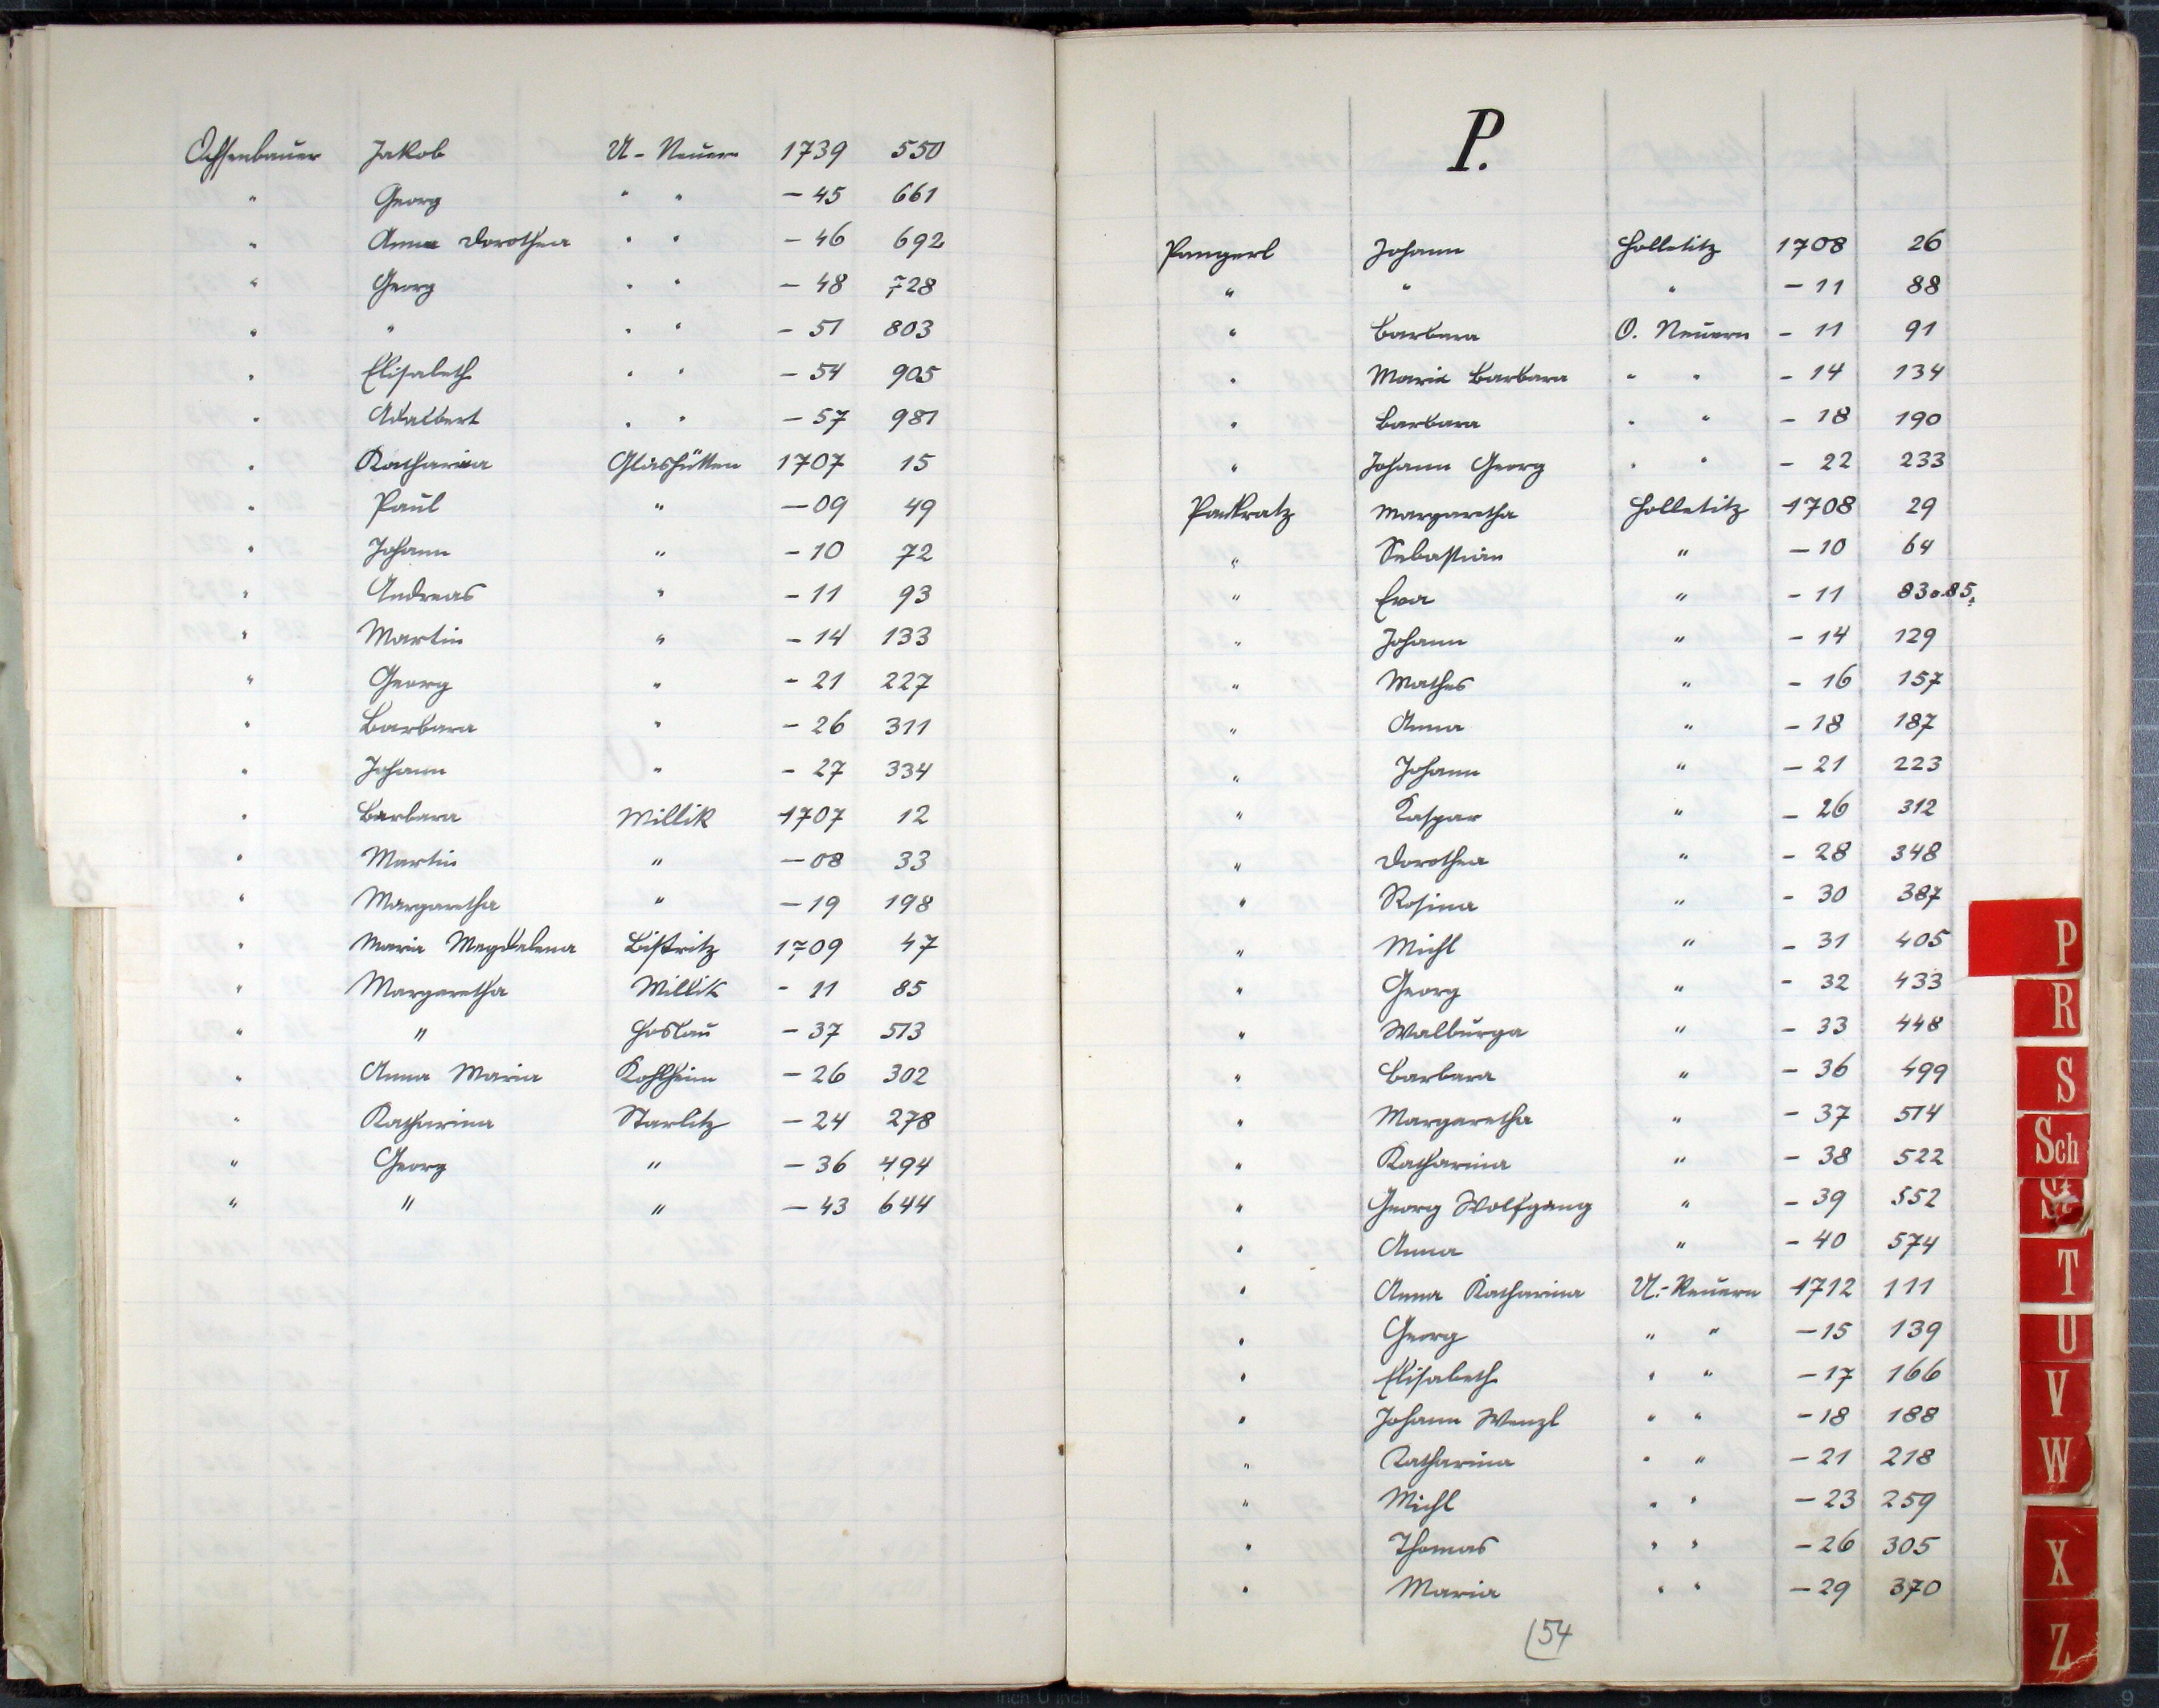 Ochsenbauer Jakob U - Neuern 1739 550
" Georg " " - 45 661
" Anna Dorothea " " - 46 692
" Georg " " - 48 728
" " " " - 51 803
" Elisabeth " " - 54 905
" Adalbert " " - 57 981
" Katharina Glashütten 1707 15
" Paul " - 09 49
" Johann " - 10 72
" Andreas " - 11 93
" Martin " - 14 133
" Georg " - 21 227
" Barbara " - 26 311
" Johann " - 27 334
" Barbara Millik 1707 12
" Martin " - 08 33
" Margaretha " - 19 198
" Maria Magdalena Bistritz 1709 47
" Margaretha Millik - 11 85
" " Hoslau - 37 513
" Anna Maria Kohlheim - 26 302
" Katharina Starlitz - 24 278
" Georg " - 36 494
" " " - 43 644
P.
Pangerl Johann Holletitz 1708 26
" " " - 11 88
" Barbara O. Neuern - 11 91
" Maria Barbara " " - 14 134
" Barbara " " - 18 190
" Johann Georg " " - 22 233
Pankratz Margaretha Holletitz 1708 29
" Sebastian " - 10 64
" Eva " - 11 83 u. 85.
" Johann " - 14 129
" Mathes " - 16 157
" Anna " - 18 187
" Johann " - 21 223
" Kaspar " - 26 312
" Dorothea " - 28 348
" Rosina " - 30 387
" Michl " - 31 405
" Georg " - 32 433
" Walburga " - 33 448
" Barbara " - 36 499
" Margaretha " - 37 514
" Katharina " - 38 522
" Georg Wolfgang " - 39 552
" Anna " - 40 574
" Anna Katharina U.- Neuern 1712 111
" Georg " " - 15 139
" Elisabeth " " - 17 166
" Johann Wenzl " " - 18 188
" Katharina " " - 21 218
" Michl " " - 23 259
" Thomas " " - 26 305
" Maria " " - 29 370
54
P
R
S
Sch
St
T
U
V
W
X
Z